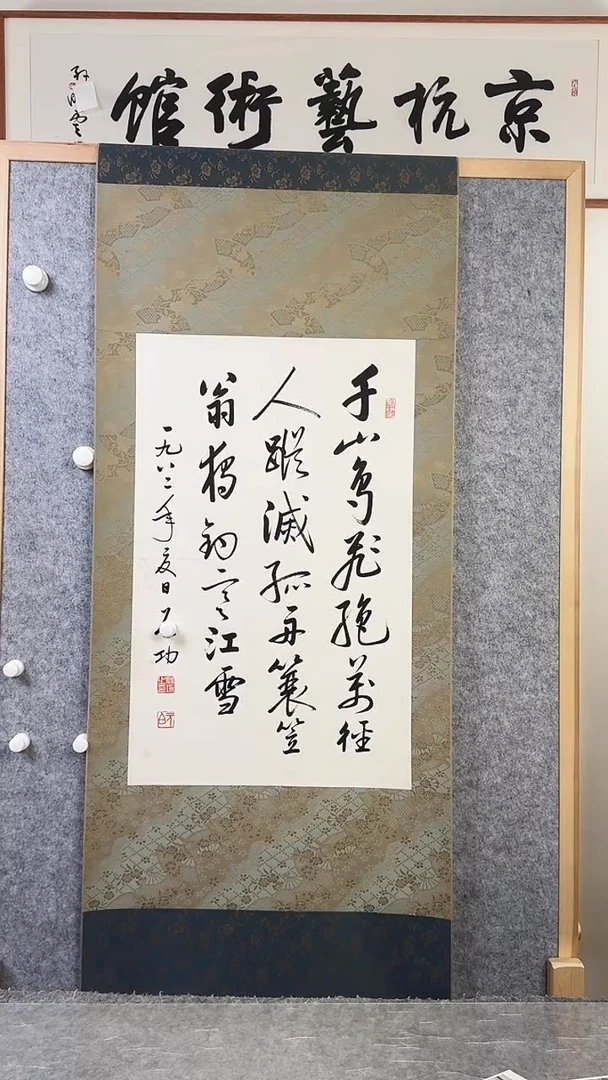 京杭藝術館
千山鳥飛絕萬徑
人蹤滅孤舟簑笠
翁独釣寒江雪
一九八二年夏日 启功